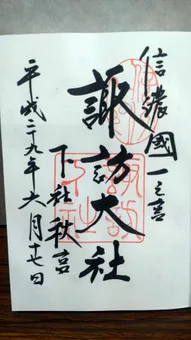 信濃國一之宮
諏訪大社
下社秋宮
平成二九年六月十七日